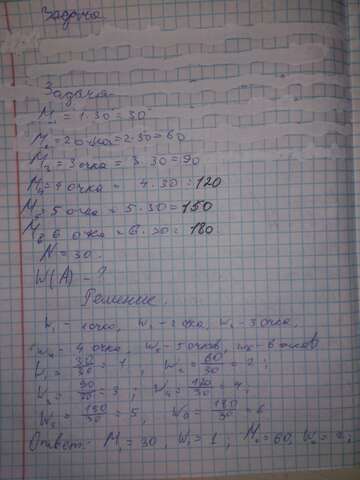 Задача
Задача
M₁ = 1·30 = 30
M₂ = 2 очка = 2·30 = 60
M₃ = 3 очка = 3·30 = 90
M₄ = 4 очка = 4·30 = 120
M₅ = 5 очка = 5·30 = 150
M₆ = 6 очка = 6·30 = 180
N = 30.
W(A) - ?
Решение.
W₁ - 1 очко, W₂ - 2 очка, W₃ - 3 очка,
W₄ - 4 очка, W₅ - 5 очков, W₆ - 6 очков
W₁ = 30/30 = 1; W₂ = 60/30 = 2;
W₃ = 90/30 = 3; W₄ = 120/30 = 4;
W₅ = 150/30 = 5, W₆ = 180/30 = 6
Ответ: M₁ = 30, W₁ = 1; M₂ = 60, W₂ = 2;